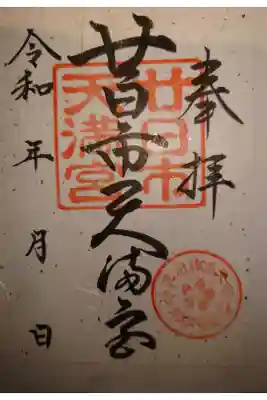 奉拝
廿日市天満宮
廿日市
天満宮
令和 年 月 日